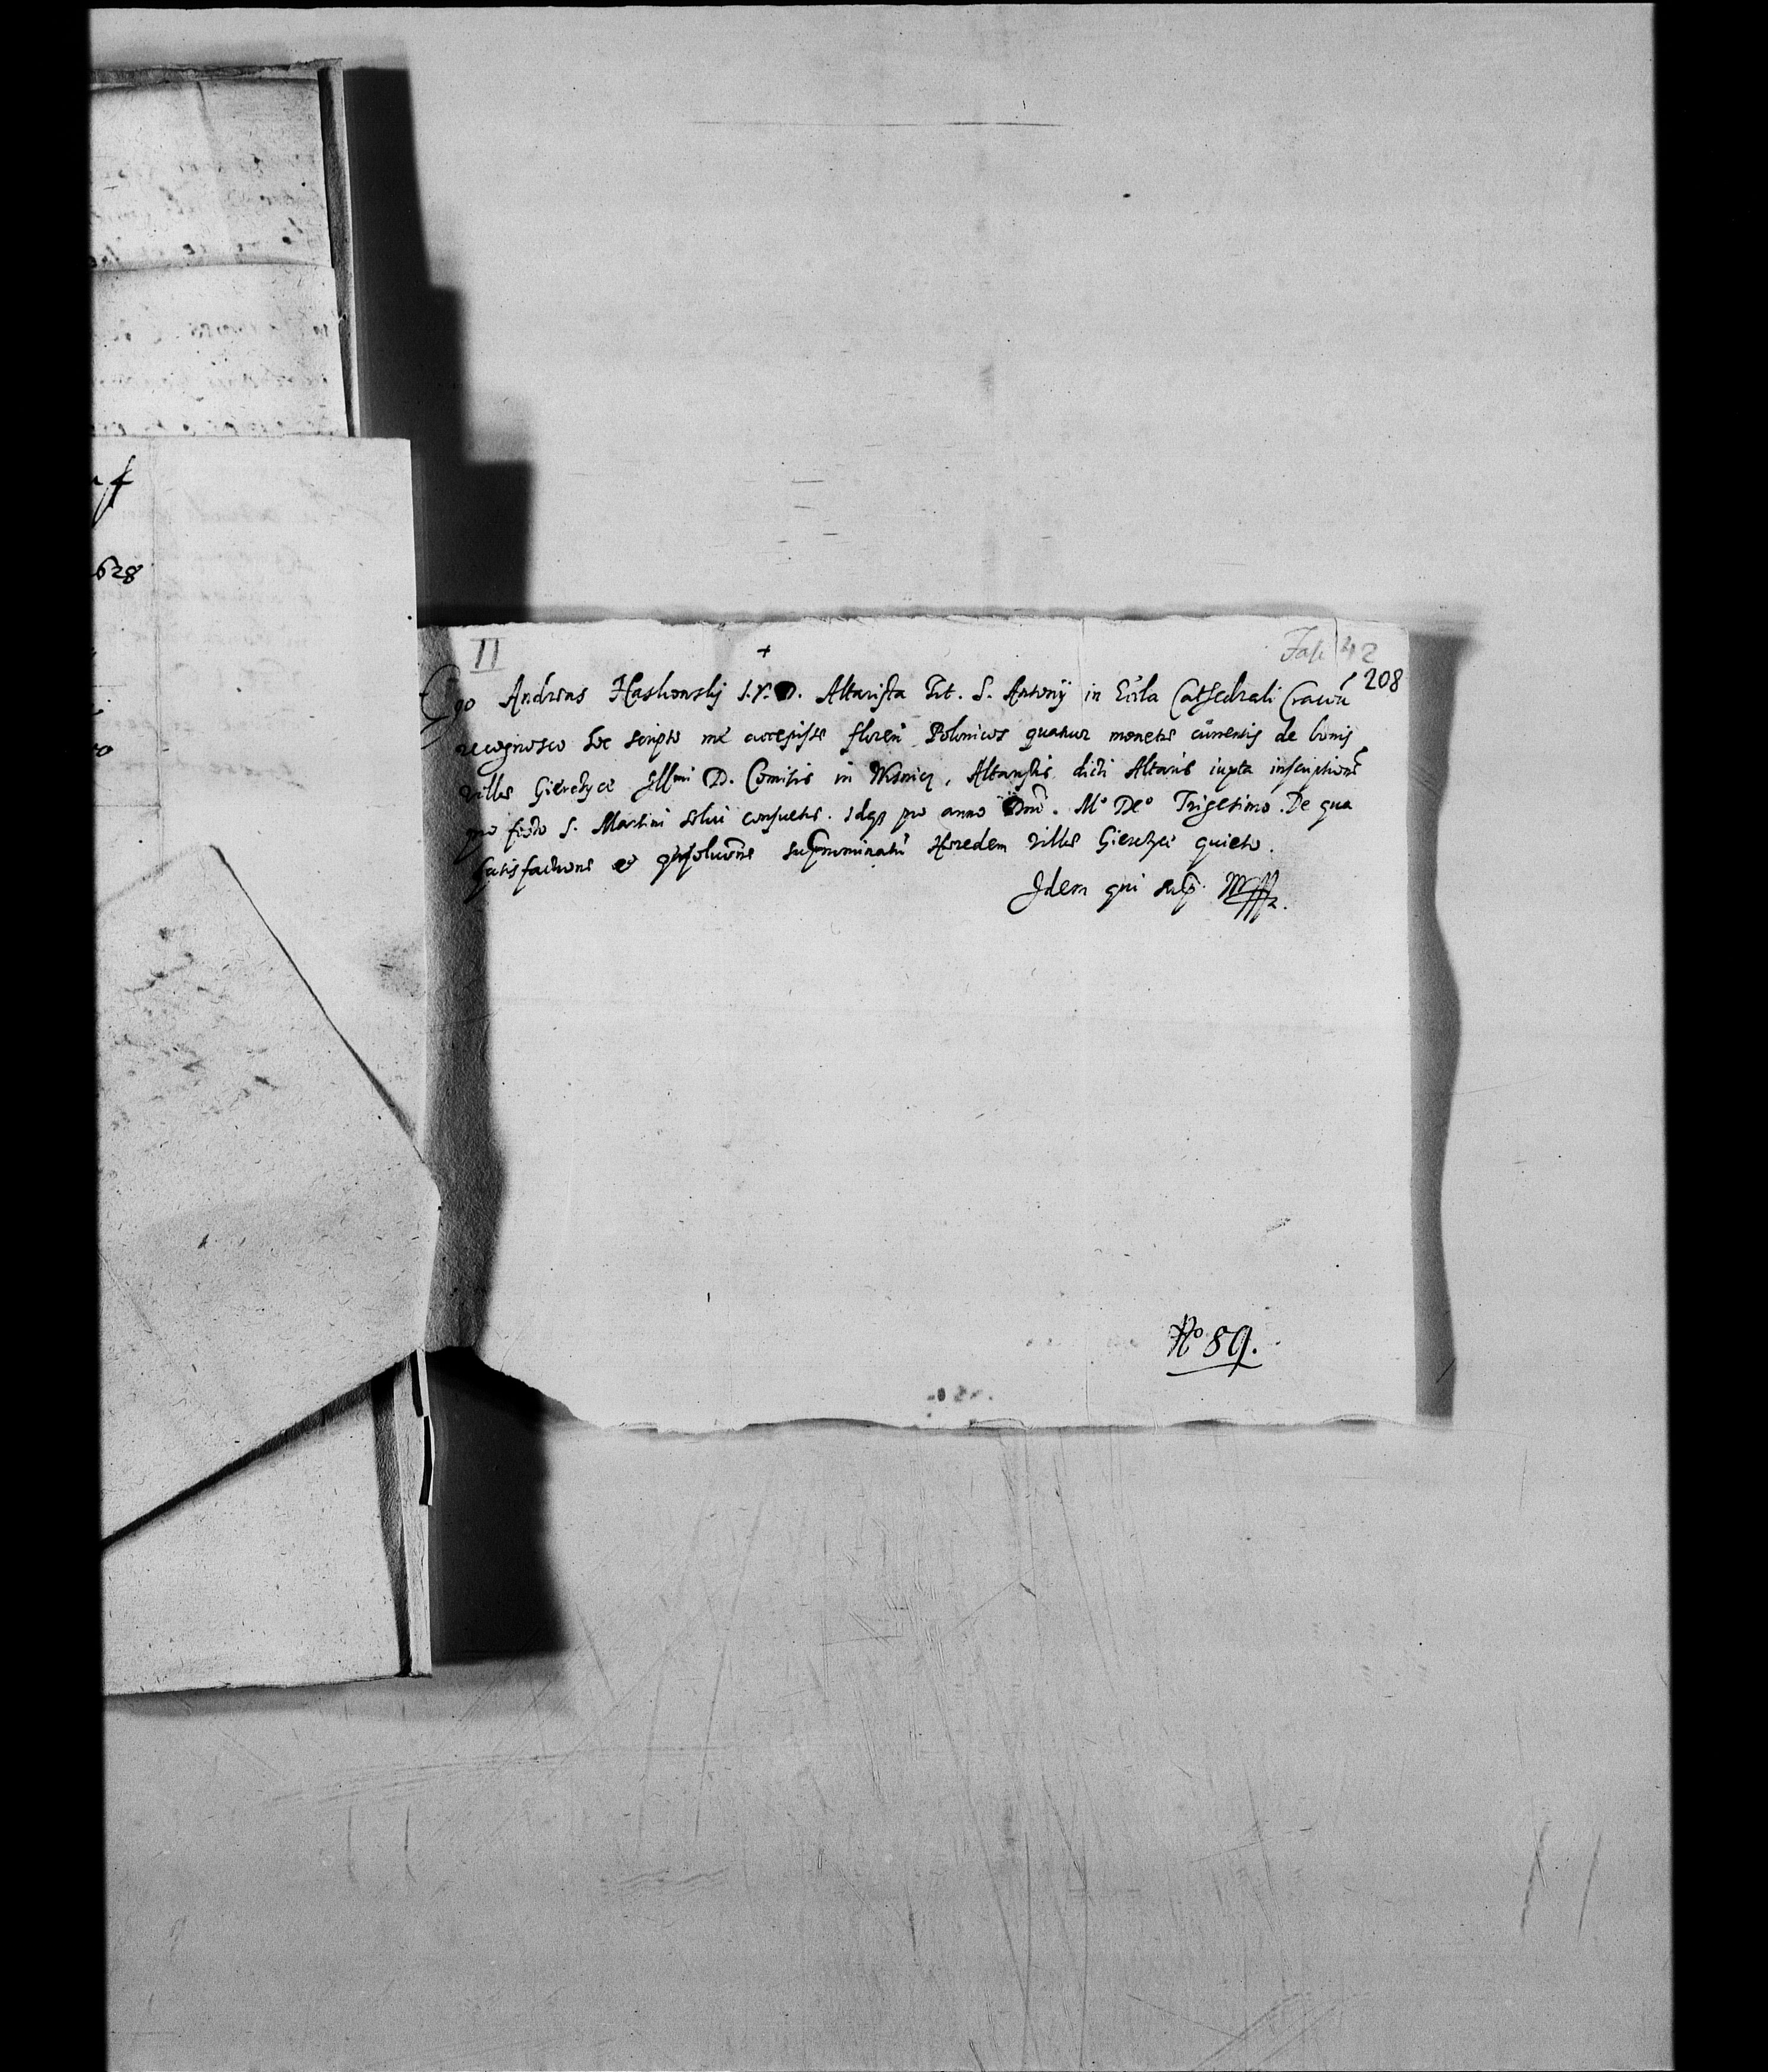 II + Fasc 42
208
Ego Andreas Haskowskj I.V.D. Altarista Tit. S. Antonÿ in Eccla Cathedrali Cracoũ
recognosco hoc scripto me accepisse floreñ Polonicos quatuor monetæ currentis de bonis
villæ Gierczyce Illmi D. Comitis in Wisnicz, Altaristis dicti Altaris iuxta inscriptionẽ
pro festo S. Martini solui consuetis. idqȝ pro anno Dñi. Mº DCº Trigesimo. De qua
satisfactione et psolucõne supnominatũ Hæredem villæ Gierczyce quieto.
Idem qui sup. Mppa.
Nº 89.
628